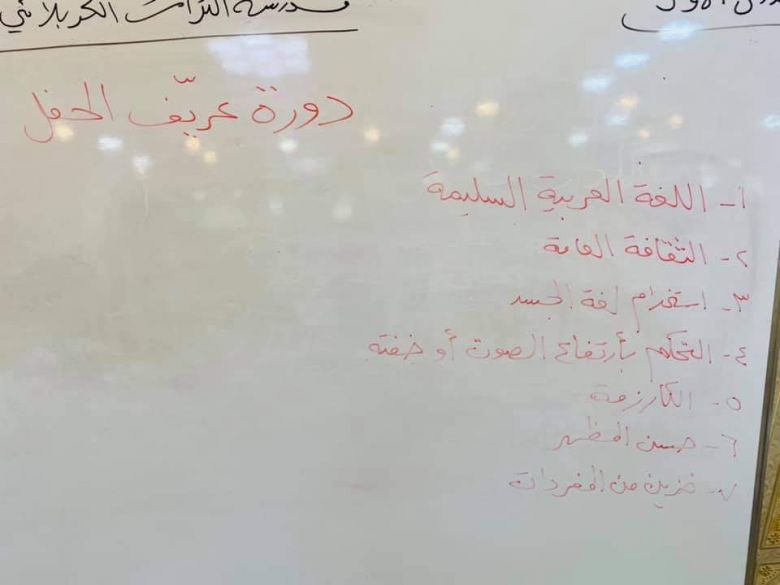 الدرس الأول
مدرسة التراث الكربلائي
دورة عريّف الحفل
١- اللغة العربية السليمة
٢- الثقافة العامة
٣- استخدام لغة الجسد
٤- التحكم بأرتفاع الصوت أو خفته
٥- الكارزمة
٦- حسن المظهر
٧- خزين من المفردات